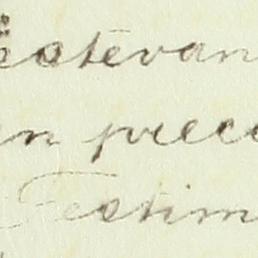 Estevan
en prece
Festim